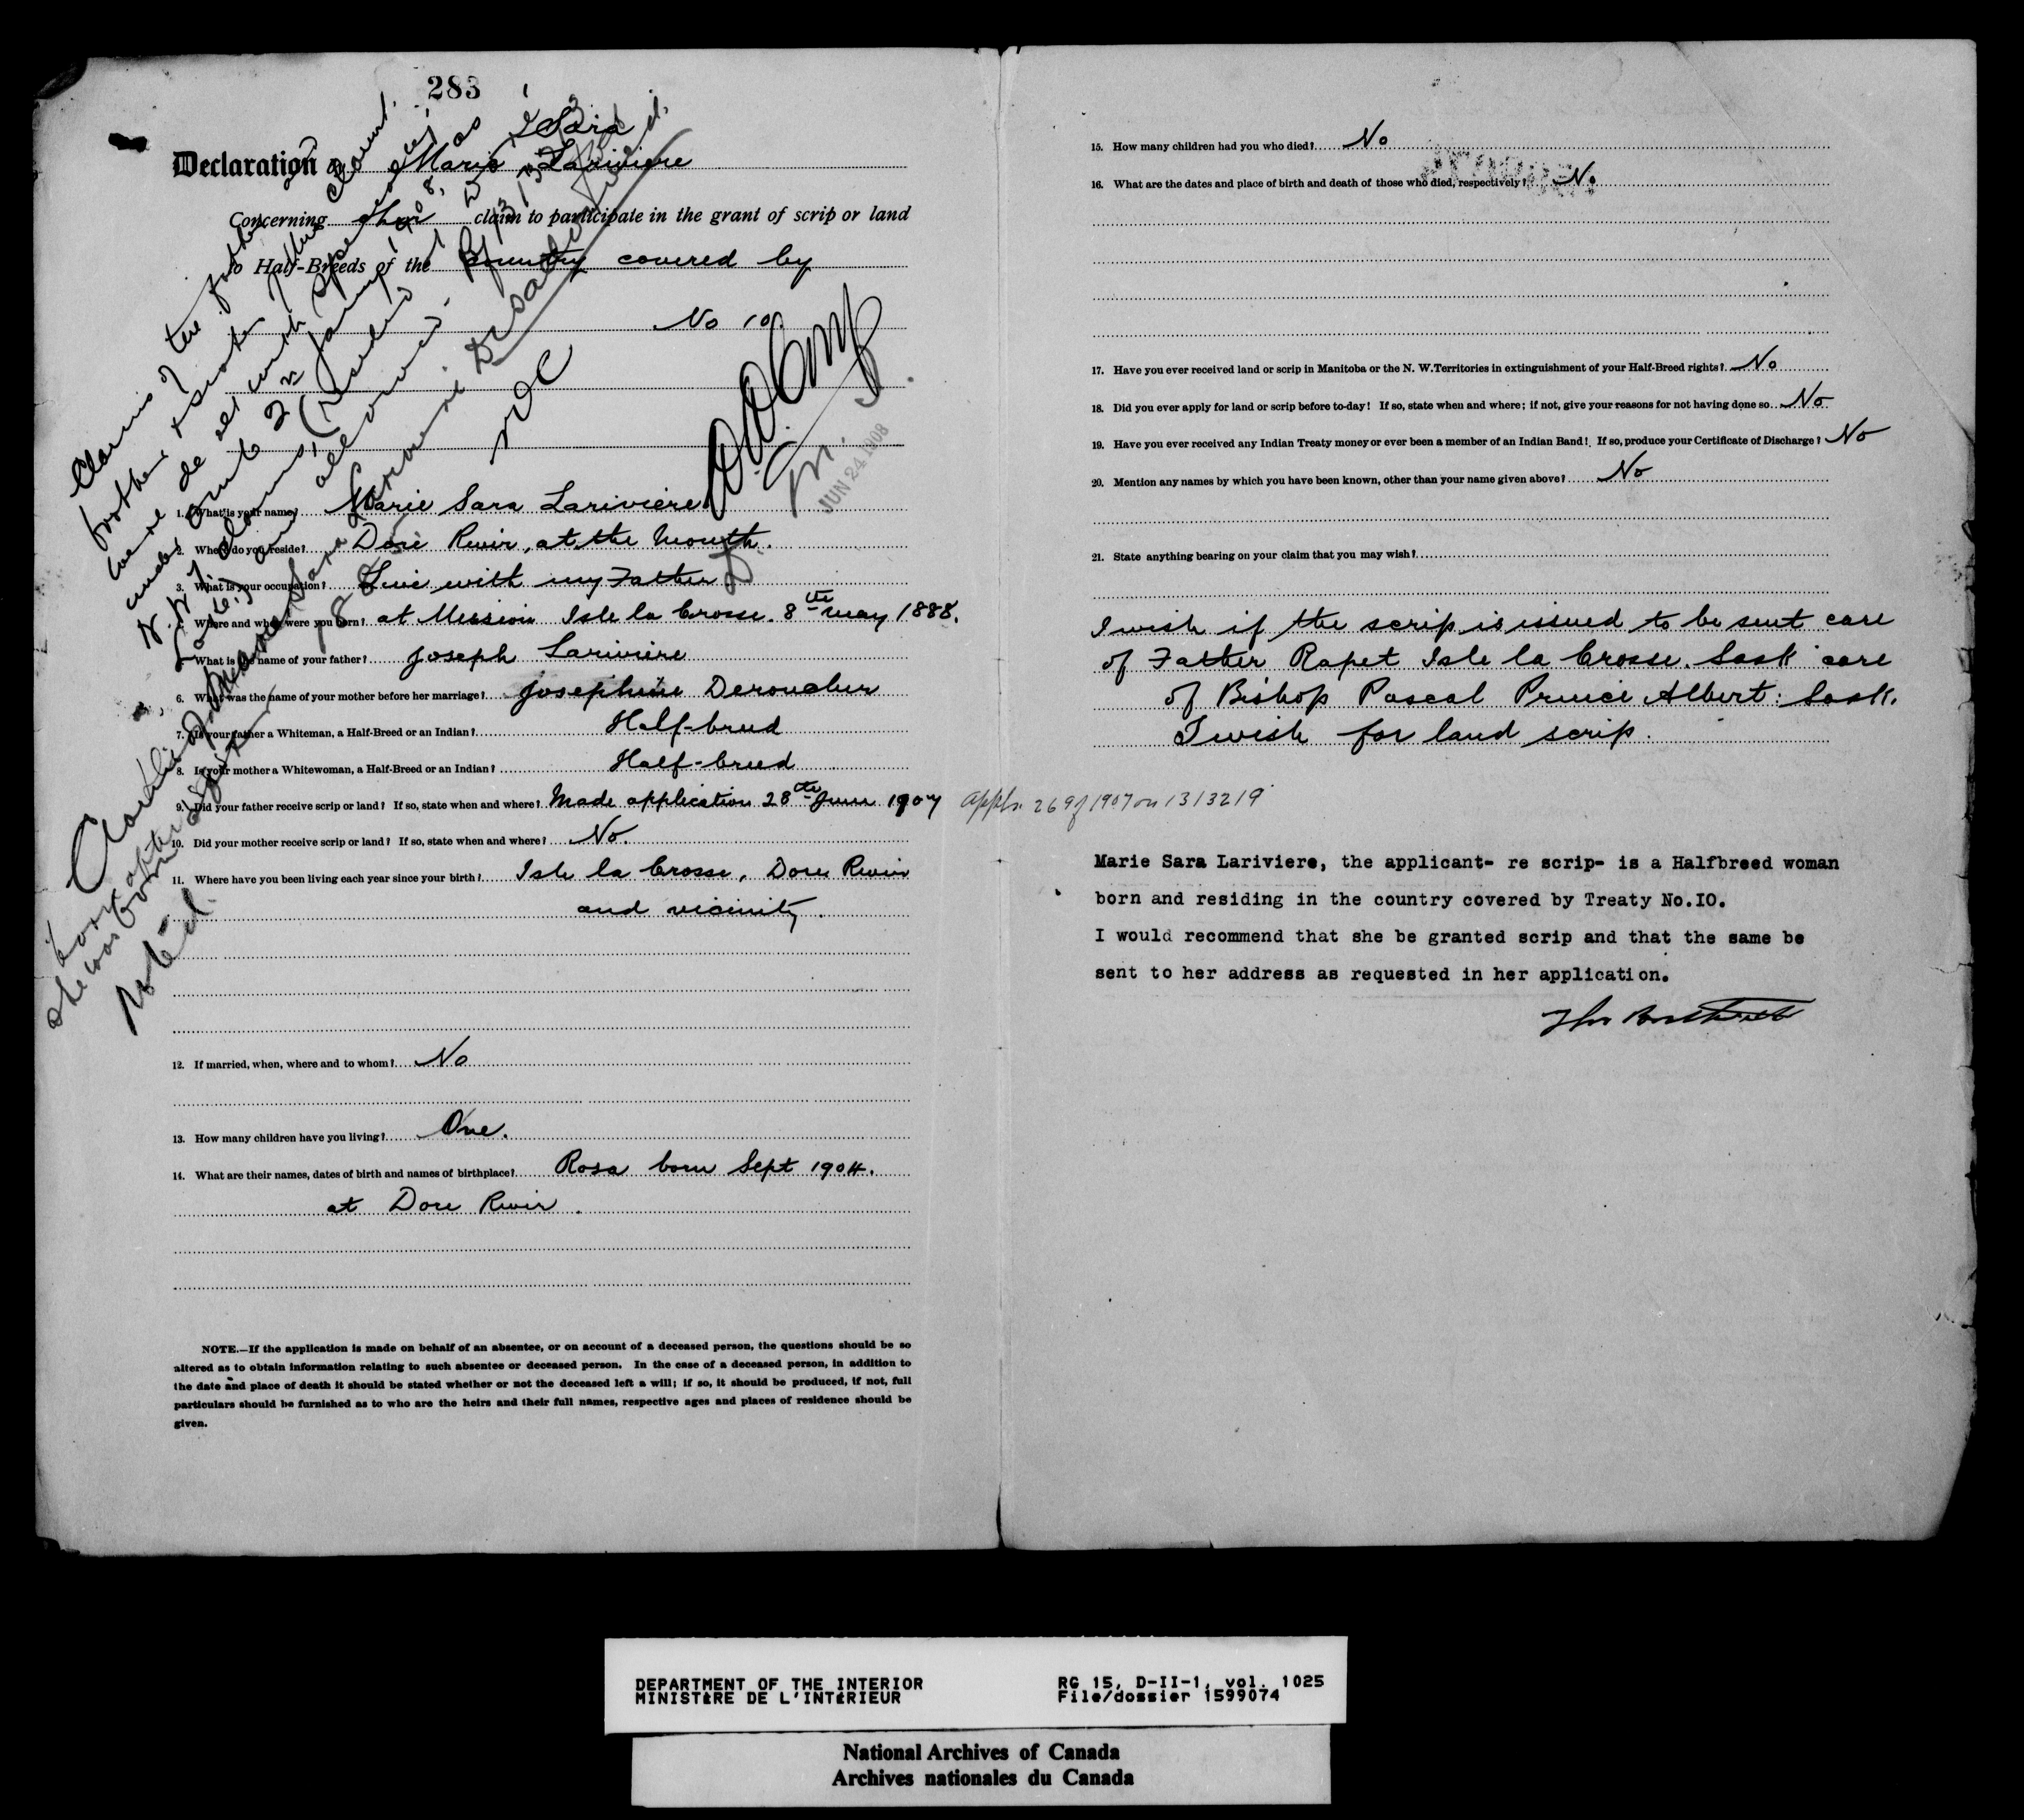 283
Declaration of Marie Sara Lariviere
Concerning her claim to participate in the grant of scrip or land
to Half-Breeds of the Country covered by
No 10
JUN 24 1908
1. What is your name? Marie Sara Lariviere
2. Where do you reside? Doré River, at the Mouth.
3. What is your occupation? Live with my Father
4. Where and when were you born? at Mission Isle la Crosse. 8th May 1888.
5. What is the name of your father? Joseph Lariviere
6. What was the name of your mother before her marriage? Josephine Deroucher
7. Is your father a Whiteman, a Half-Breed or an Indian? Half-breed
8. Is your mother a Whitewoman, a Half-Breed or an Indian? Half-breed
9. Did your father receive scrip or land? If so, state when and where? Made application 28th June 1907 Appln. 269 of 1907 on 1313219
10. Did your mother receive scrip or land? If so, state when and where? No.
11. Where have you been living each year since your birth? Isle la Crosse, Dore River
and vicinity.
12. If married, when, where and to whom? No
13. How many children have you living? One.
14. What are their names, dates of birth and names of birthplace? Rosa born Sept 1904.
at Dore River.
NOTE.—If the application is made on behalf of an absentee, or on account of a deceased person, the questions should be so
altered as to obtain information relating to such absentee or deceased person. In the case of a deceased person, in addition to
the date and place of death it should be stated whether or not the deceased left a will; if so, it should be produced, if not, full
particulars should be furnished as to who are the heirs and their full names, respective ages and places of residence should be
given.
Claims of the father
brother & sister of this claimt.
were dealt with
under
N.W. claims
allowed
Disallowed.
she was born
Noted
15. How many children had you who died? No
16. What are the dates and place of birth and death of those who died, respectively? No
17. Have you ever received land or scrip in Manitoba or the N. W. Territories in extinguishment of your Half-Breed rights? No
18. Did you ever apply for land or scrip before to-day? If so, state when and where; if not, give your reasons for not having done so. No
19. Have you ever received any Indian Treaty money or ever been a member of an Indian Band? If so, produce your Certificate of Discharge? No
20. Mention any names by which you have been known, other than your name given above? No
21. State anything bearing on your claim that you may wish?
I wish if the scrip is issued to be sent care
of Father Rapet Isle la Crosse. Sask care
of Bishop Pascal Prince Albert: Sask.
I wish for land scrip.
Marie Sara Lariviere, the applicant- re scrip- is a Halfbreed woman
born and residing in the country covered by Treaty No.IO.
I would recommend that she be granted scrip and that the same be
sent to her address as requested in her application.
DEPARTMENT OF THE INTERIOR
MINISTÈRE DE L'INTÉRIEUR
RG 15, D-II-1, vol. 1025
File/dossier 1599074
National Archives of Canada
Archives nationales du Canada